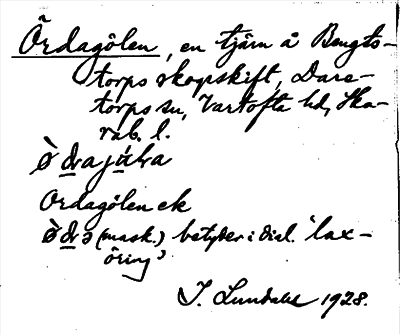 Ördagölen, en tjärn å Bengts-
torps skogsskift, Dare-
torps sn, Vartofta hd, Ska-
rab. l.
Ordagölen ek
(mask.) betyder i dial. 'lax-
öring'
J. Lundahl 1928.